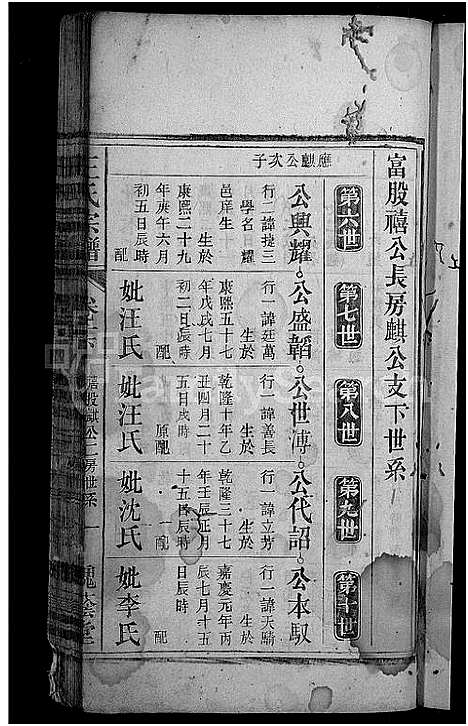 富股禧公長房麒公支下世系
第六世
第七世
第八世
第九世
第十世
應麒公次子
公興耀
行一諱捷三
學名日耀
邑庠生
生於
康熙二十九
年庚午六月
初五日辰時
配
公盛韜
行一諱廷萬
生於
康熙五十七
年戊戌七月
初二日辰時
配
妣汪氏
公世溥
行一諱善長
生於
乾隆十年乙
丑四月二十
五日戌時
原配
妣汪氏
公代詔
行一諱立芳
生於
乾隆三十七
年壬辰正月
十五日辰時
配
妣沈氏
公本馭
行一諱天騎
生於
嘉慶元年丙
辰七月十五
日辰時
配
妣李氏
王氏宗譜
富股麒公二房世系
一